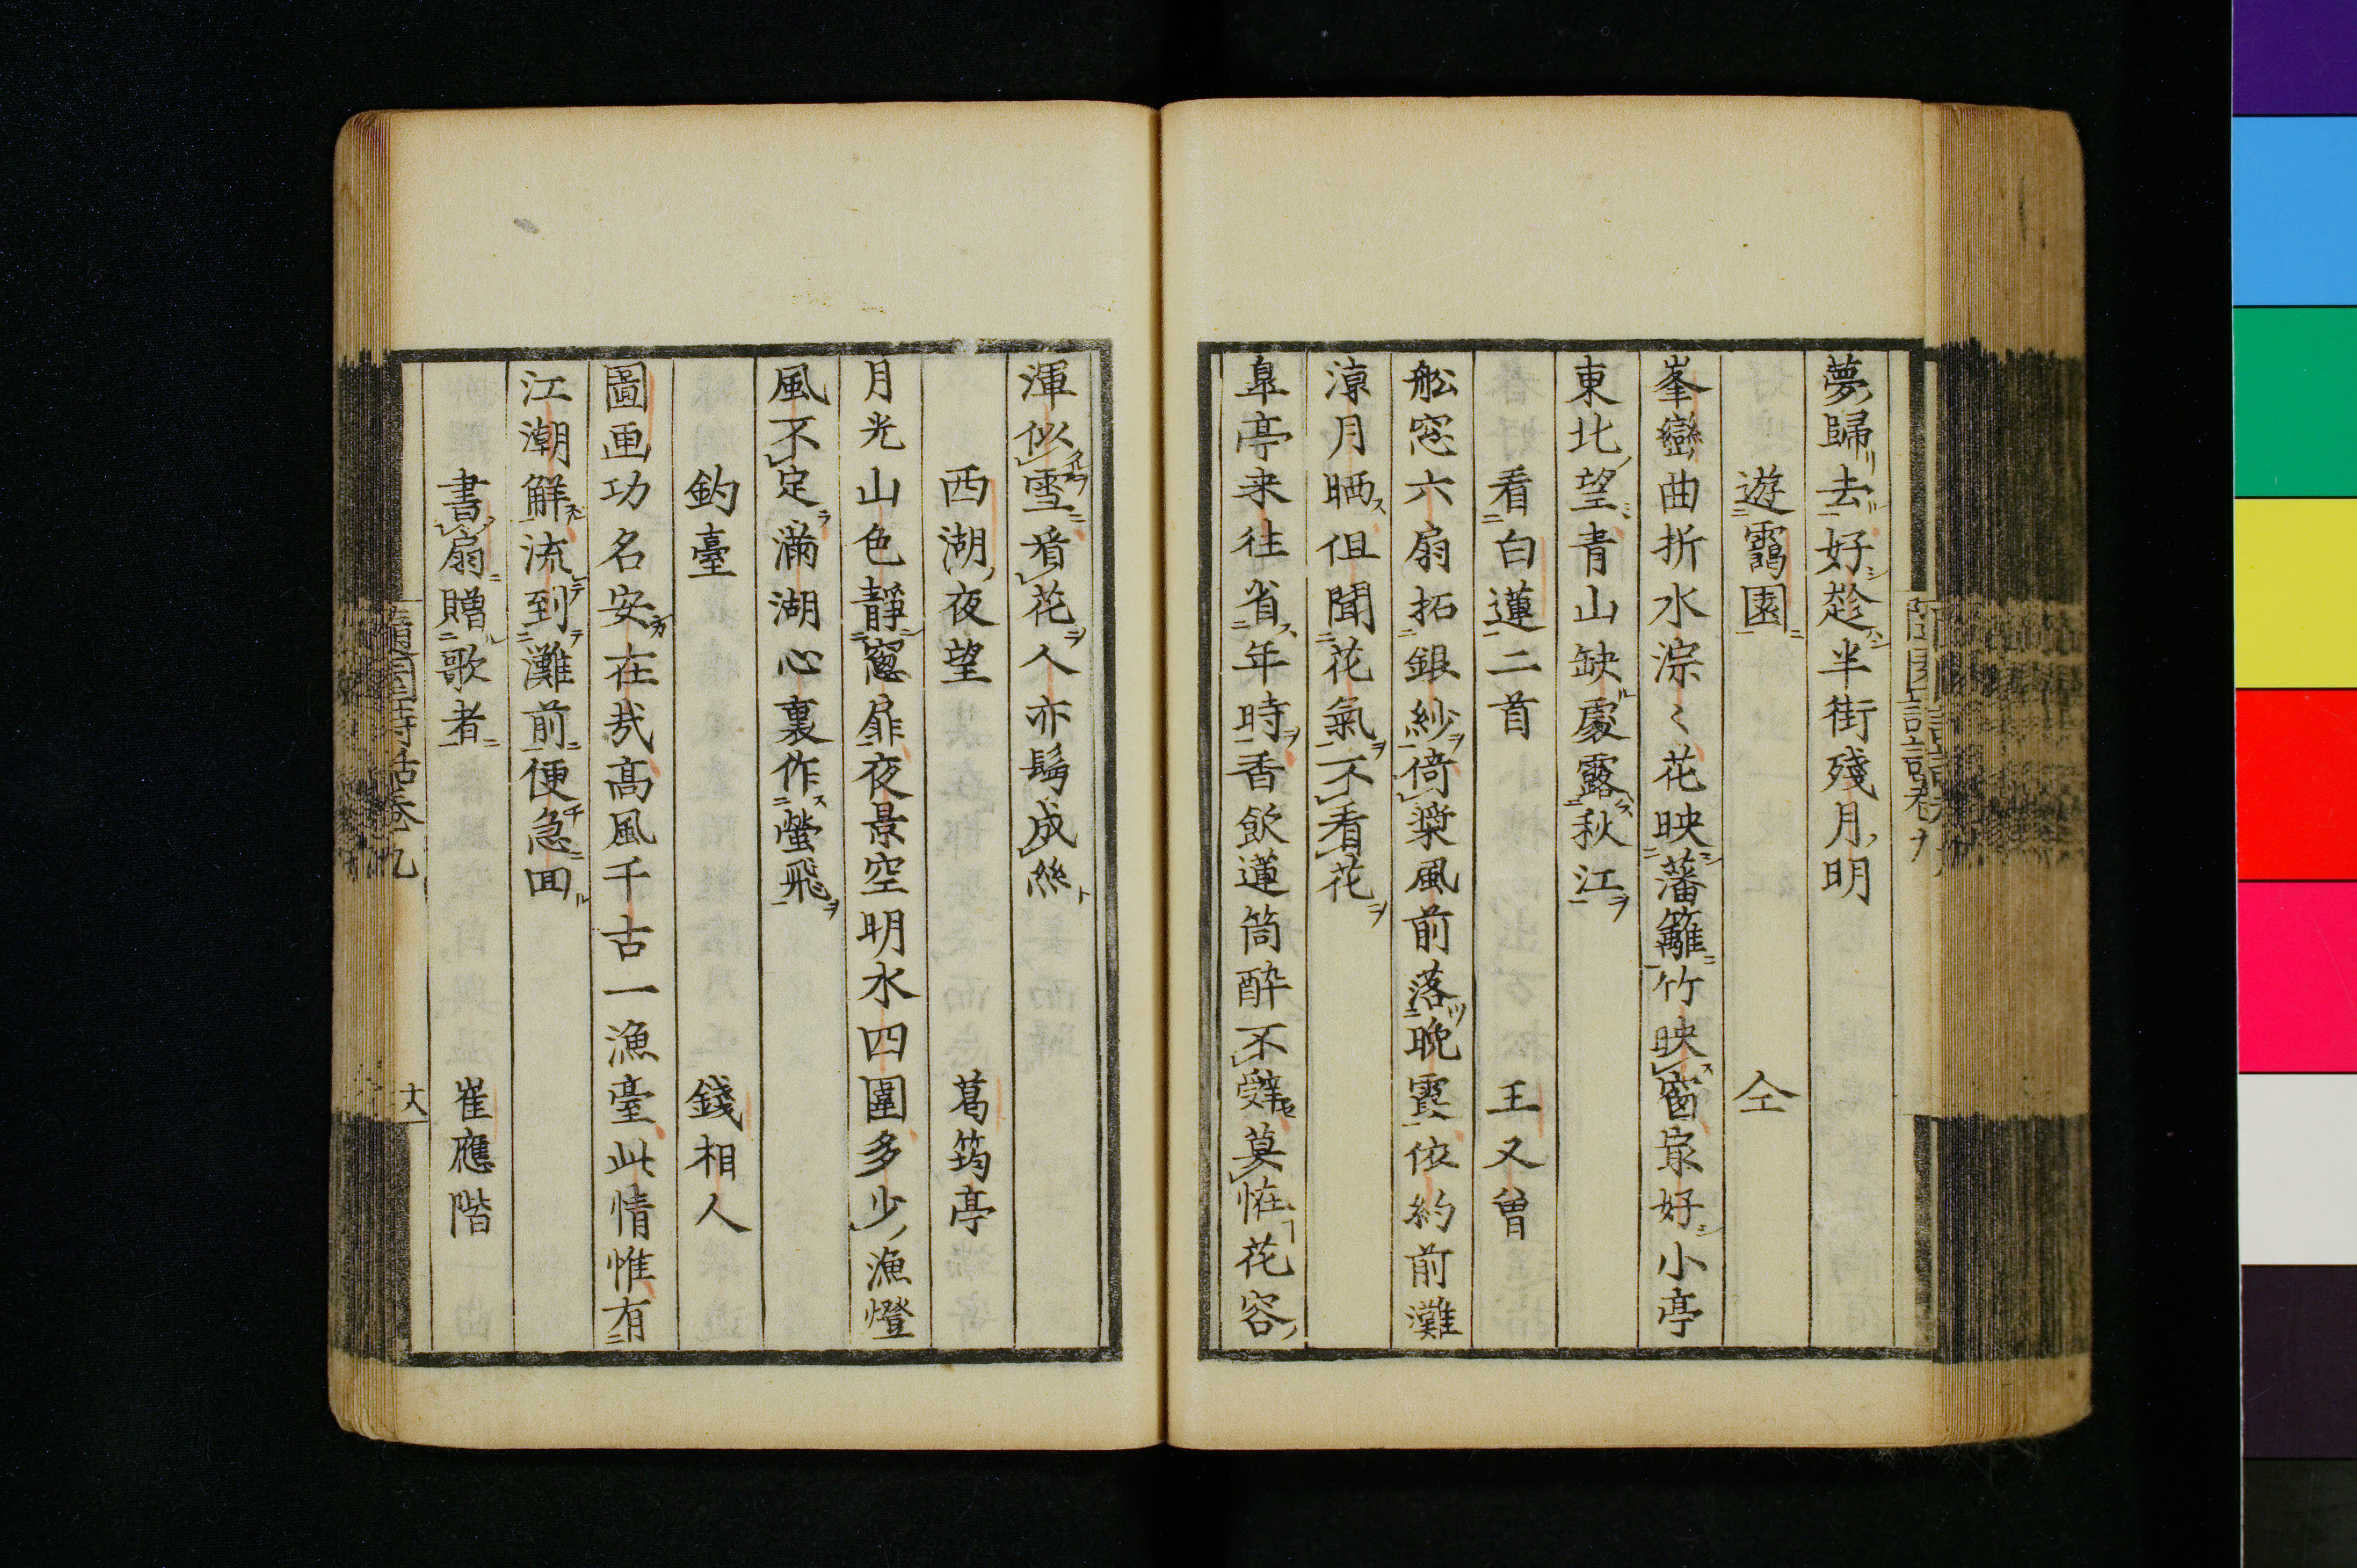 夢歸去好趁半街殘月明
遊靄園　仝
峯巒曲折水淙〻花映藩籬竹映窗㝡好小亭
東北望青山缺處露秋江
看白蓮二首　王又曾
舩窓六扇拓銀紗倚槳風前落晩霞依約前灘
凉月晒但聞花氣不看花
皐亭来往省年時香飲蓮筒酔不辤莫恠花容
渾似雪看花人亦鬂成絲
西湖夜望　葛筠亭
月光山色靜窻扉夜景空明水四圍多少漁燈
風不定滿湖心裏作螢飛
釣臺　錢相人
圖画功名安在㢤高風千古一漁臺此情惟有
江潮觧流到灘前便急囬
書扇贈歌者　崔應階
隨園詩話卷九　十八